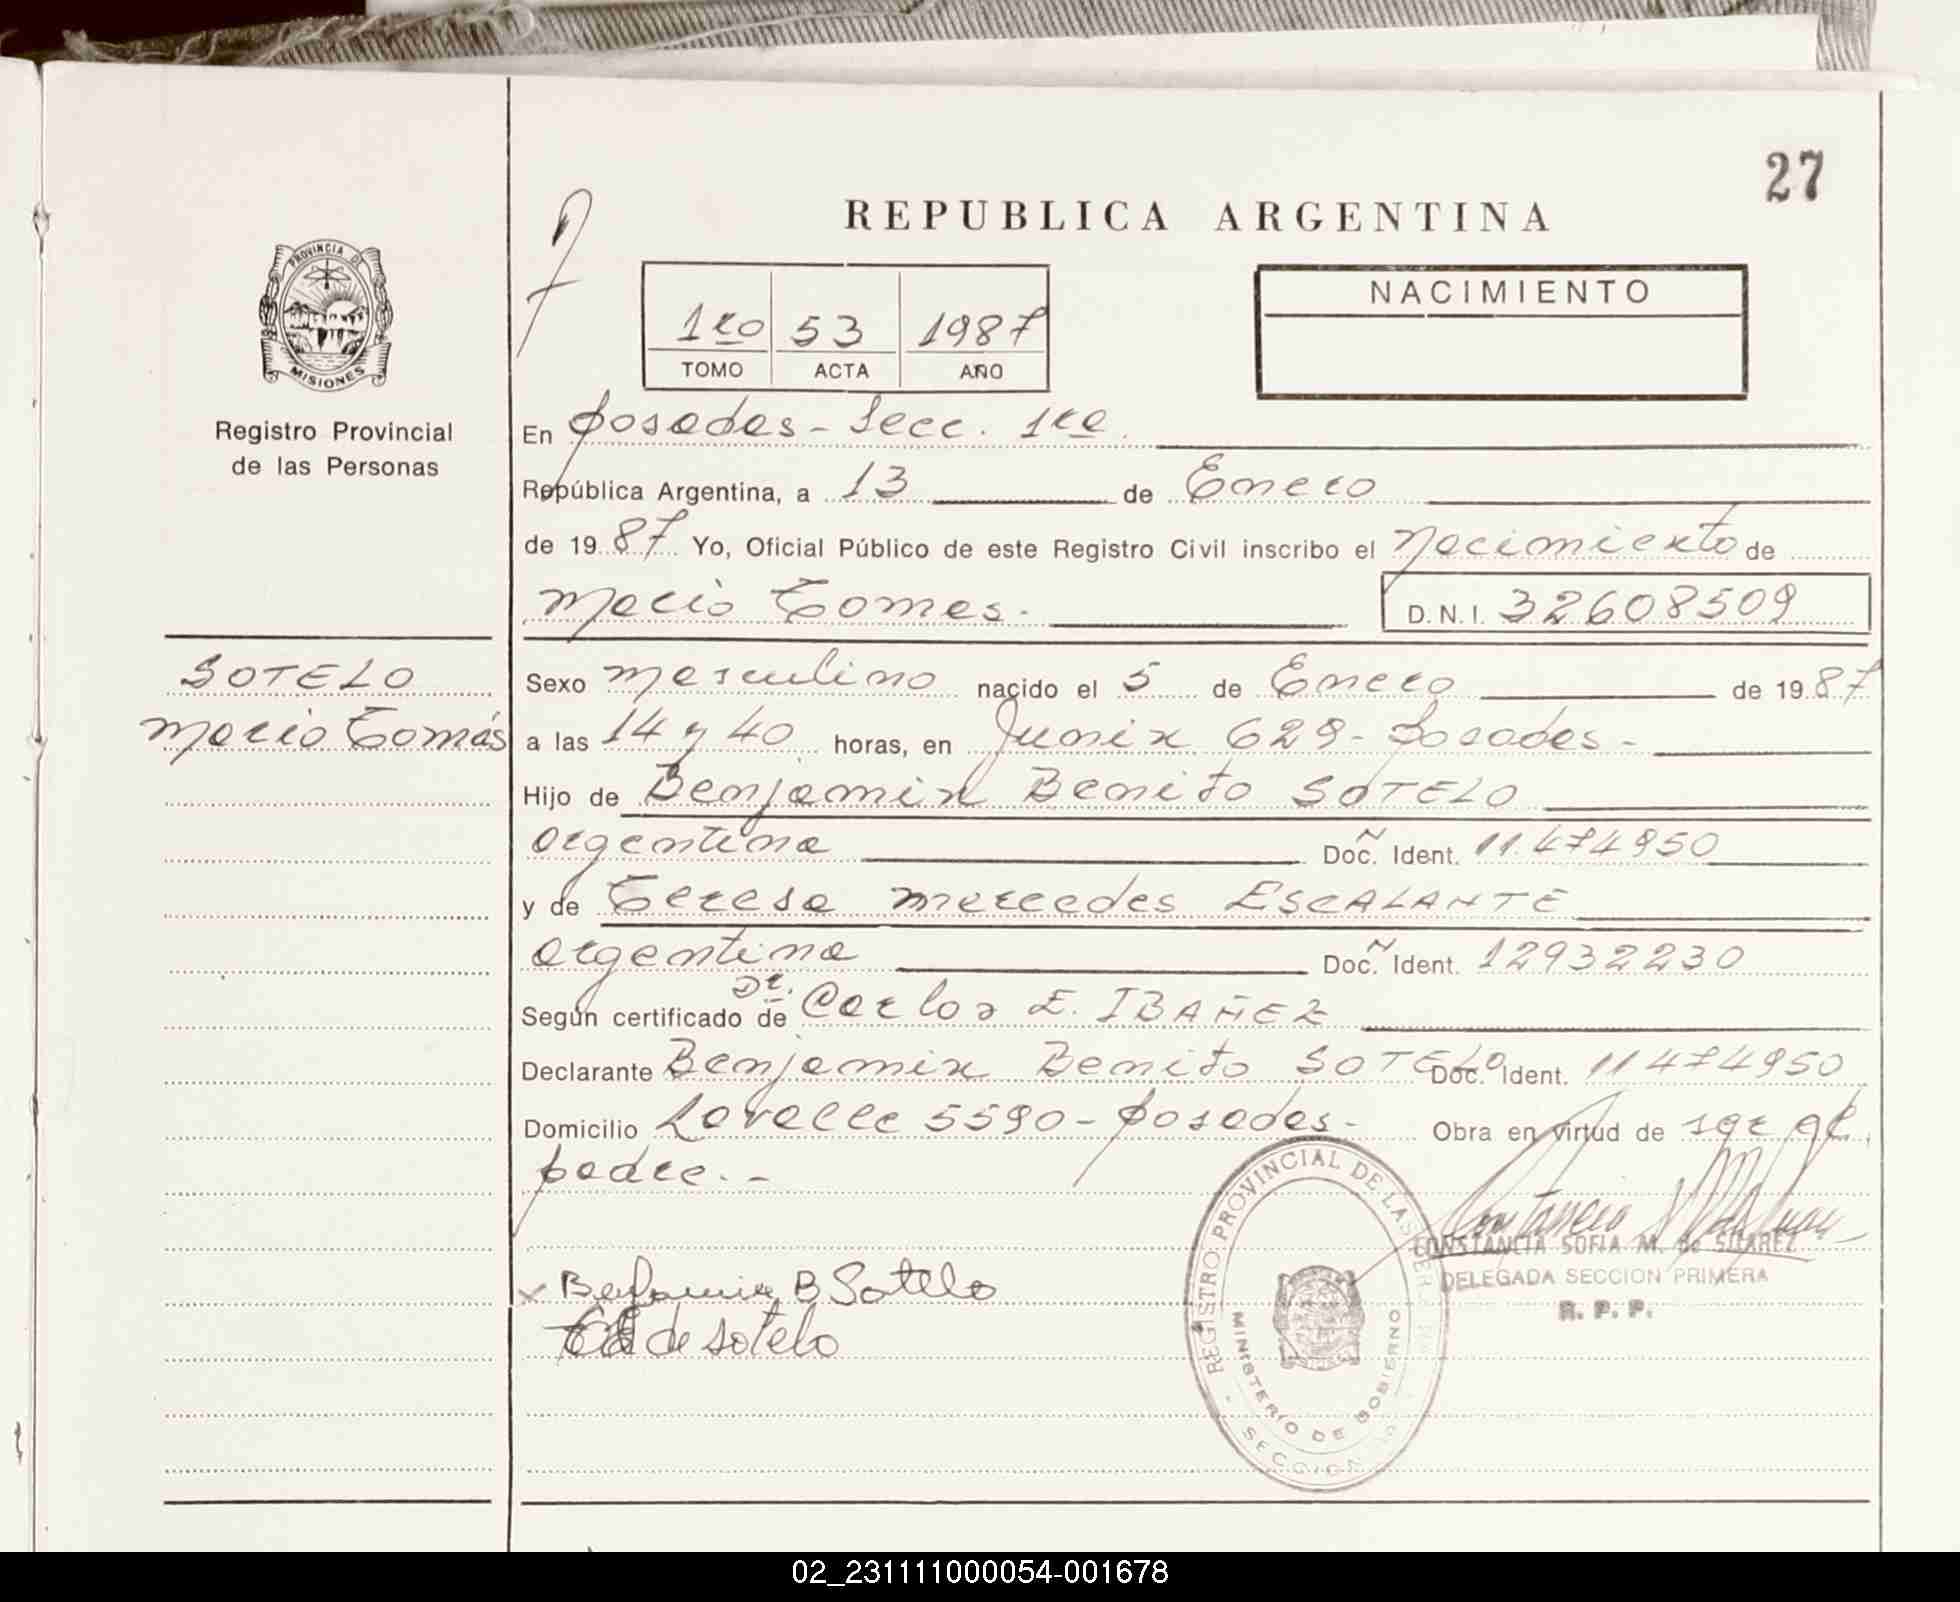 27
REPUBLICA ARGENTINA
PROVINCIA D
MISIONES
Registro Provincial
de las Personas
1ro 53 1987
TOMO ACTA AÑO
NACIMIENTO
En Posadas - Secc. 1ra.
República Argentina, a 13 de Enero
de 1987 Yo, Oficial Público de este Registro Civil inscribo el Nacimiento de
Mario Tomas.
D. N. I. 32608509
SOTELO
Mario Tomás
Sexo Masculino nacido el 5 de Enero de 1987
a las 14 y 40 horas, en Junin 629 - Posadas -
Hijo de Benjamin Benito SOTELO
argentina Doc. Ident. 11.474950
y de Teresa Mercedes ESCALANTE
argentina Doc. Ident. 12932230
Según certificado de Dr. Carlos E. IBAÑEZ
Declarante Benjamin Benito SOTELO Doc. Ident. 11474950
Domicilio Lavalle 5590 - Posadas - Obra en virtud de ser el
padre. -
Benjamin B Sotelo
de sotelo
CONSTANCIA SOFIA M. de SUAREZ
DELEGADA SECCION PRIMERA
R. P. P.
REGISTRO PROVINCIAL DE LAS PER
MINISTERIO DE GOBIERNO
SECCION
02_231111000054-001678